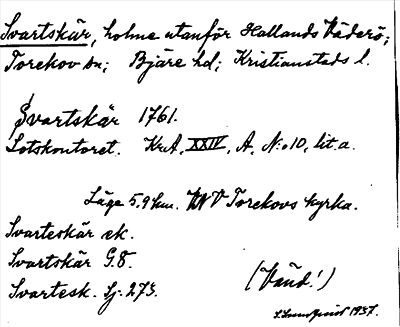 Svartskär, holme utanför Hallands Väderö;
Torekov sn; Bjäre hd; Kristianstads l.
Svartskär 1761.
Lotskontoret. KrA, XXIV, A. N:o 10, lit. a.
Läge 5.9 km. NNV Torekovs kyrka.
Svarteskär ek.
Svartskär G.8.
Svartesk. Sj. 273.
(Vänd!)
1937.